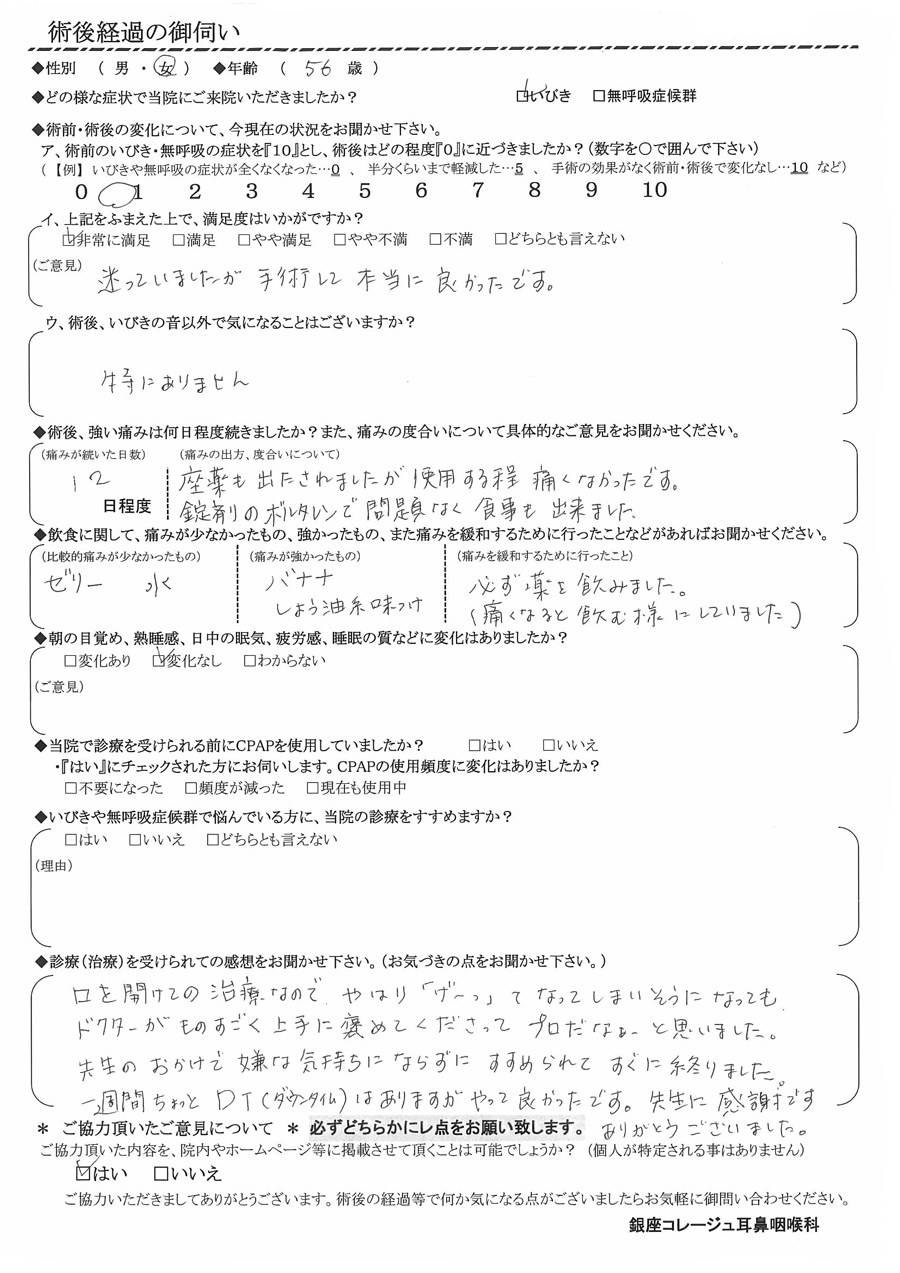 術後経過の御伺い
◆性別 ( 男 ・ 女 ) ◆年齢 ( 56 歳 )
◆どの様な症状で当院にご来院いただきましたか? ☑いびき □無呼吸症候群
◆術前・術後の変化について、今現在の状況をお聞かせ下さい。
ア、術前のいびき・無呼吸の症状を『10』とし、術後はどの程度『0』に近づきましたか?(数字を○で囲んで下さい)
(【例】いびきや無呼吸の症状が全くなくなった…0 、 半分くらいまで軽減した…5 、 手術の効果がなく術前・術後で変化なし…10 など)
0 1 2 3 4 5 6 7 8 9 10
イ、上記をふまえた上で、満足度はいかがですか?
☑非常に満足 □満足 □やや満足 □やや不満 □不満 □どちらとも言えない
(ご意見)
迷っていましたが 手術して 本当に 良かったです。
ウ、術後、いびきの音以外で気になることはございますか?
特にありません
◆術後、強い痛みは何日程度続きましたか?また、痛みの度合いについて具体的なご意見をお聞かせください。
(痛みが続いた日数) (痛みの出方、度合いについて)
12 日程度
座薬も出たされましたが 使用する程 痛くなかったです。
錠剤りのボルタレンで 問題なく 食事も 出来ました
◆飲食に関して、痛みが少なかったもの、強かったもの、また痛みを緩和するために行ったことなどがあればお聞かせください。
(比較的痛みが少なかったもの) (痛みが強かったもの) (痛みを緩和するために行ったこと)
ゼリー 水 バナナ 必ず薬を飲みました。
しょう油系味つけ (痛くなると飲む様にしていました)
◆朝の目覚め、熟睡感、日中の眠気、疲労感、睡眠の質などに変化はありましたか?
□変化あり ☑変化なし □わからない
(ご意見)
◆当院で診療を受けられる前にCPAPを使用していましたか? □はい □いいえ
・『はい』にチェックされた方にお伺いします。CPAPの使用頻度に変化はありましたか?
□不要になった □頻度が減った □現在も使用中
◆いびきや無呼吸症候群で悩んでいる方に、当院の診療をすすめますか?
□はい □いいえ □どちらとも言えない
(理由)
◆診療(治療)を受けられての感想をお聞かせ下さい。(お気づきの点をお聞かせ下さい。)
口を開けての治療なので やはり「げーっ」て なってしまいそうになっても
ドクターが ものすごく上手に褒めてくださって プロだなぁーと思いました。
先生のおかげで 嫌な気持ちにならずに すすめられて すぐに終りました。
一週間ちょっと DT(ダウンタイム)はありますが やって良かったです。先生に感謝です
ありがとうございました。
* ご協力頂いたご意見について * 必ずどちらかにレ点をお願い致します。
ご協力頂いた内容を、院内やホームページ等に掲載させて頂くことは可能でしょうか? (個人が特定される事はありません)
☑はい □いいえ
ご協力いただきましてありがとうございます。術後の経過等で何か気になる点がございましたらお気軽に御問い合わせください。
銀座コレージュ耳鼻咽喉科